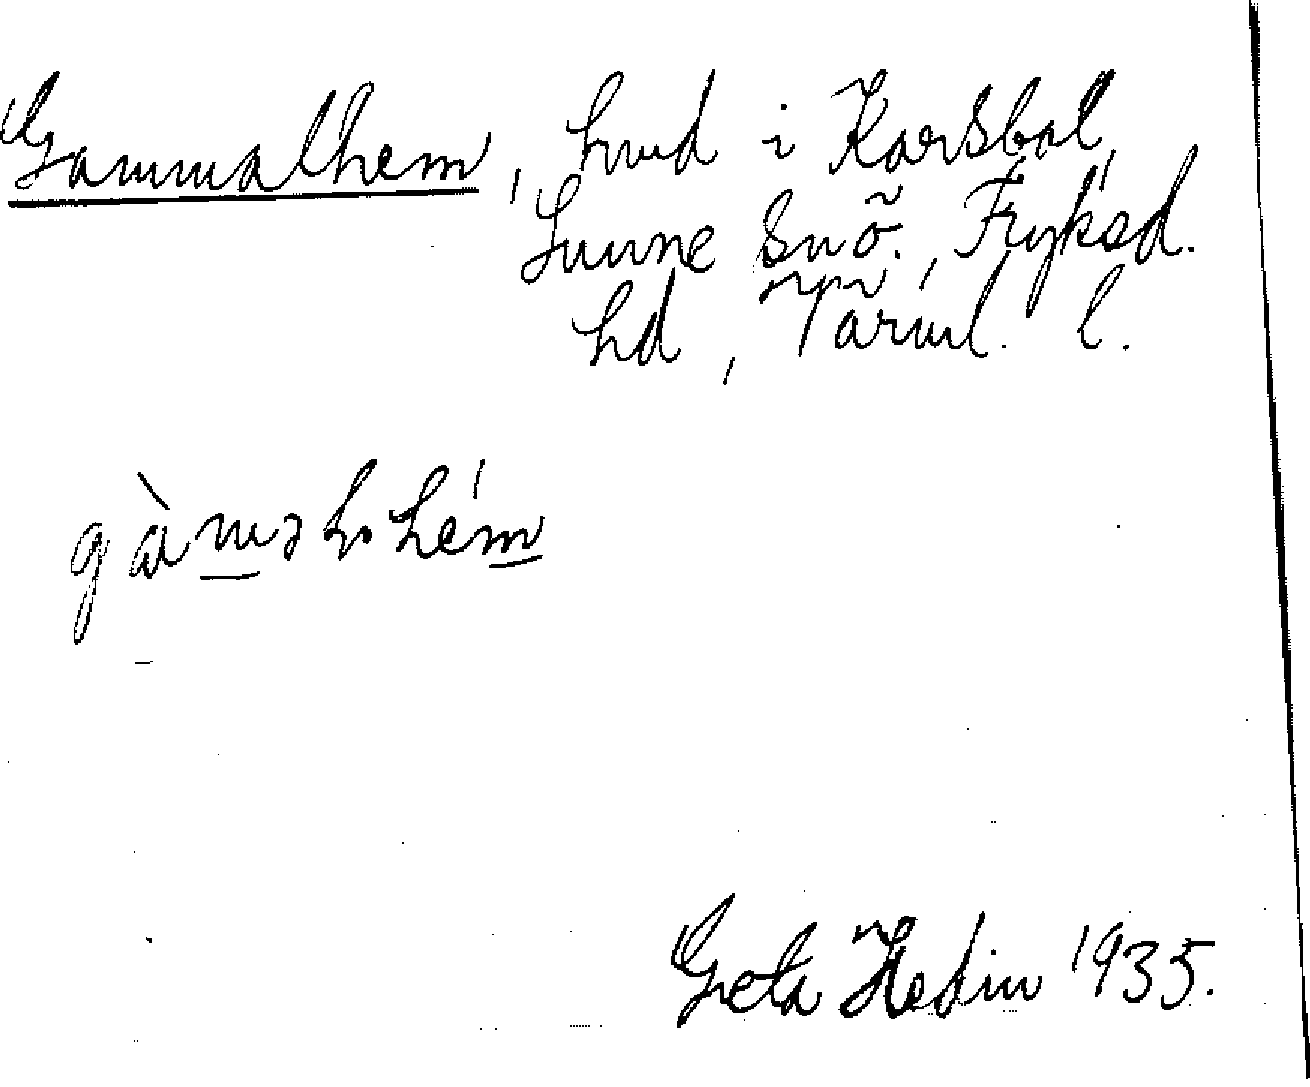 Gammalhem, hmd i Karsbol,
Sunne snö., Fryksd.
hd, Värml. l.
gàməḷhém
Greta Hedin 1935.